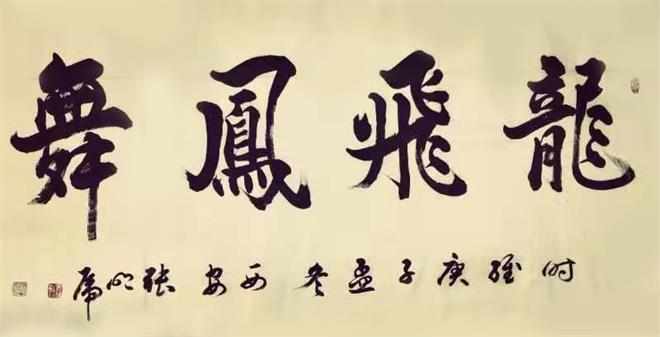 龍飛鳳舞
时維庚子孟冬西安張虎